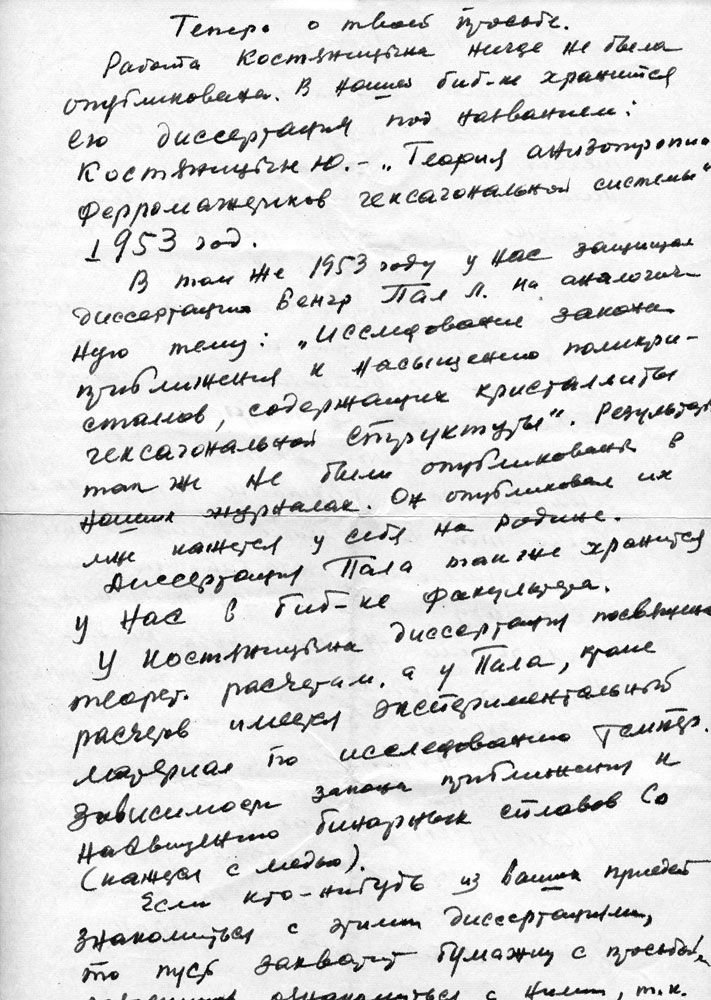 Теперь о твоей просьбе.
Работа Костяницына нигде не была
опубликована. В нашей биб-ке хранится
его диссертация под названием:
Костяницын Ю. – „Теория анизотропии
ферромагнетиков гексагональной системы"
1953 год.
В том же 1953 году у нас защищал
диссертацию венгр Пал Л. на аналогич-
ную тему: „Исследование закона
приближения к насыщению поликри-
сталлов, содержащих кристаллиты
гексагональной структуры". Результаты
так же не были опубликованы в
наших журналах. Он опубликовал их
мне кажется у себя на родине.
Диссертация Пала также хранится
у нас в биб-ке факультета.
У Костяницына диссертация посвящена
теорет. расчетам, а у Пала, кроме
расчетов имеется экспериментальный
материал по исследованию темпер.
зависимости закона приближения к
насыщению бинарных сплавов Co
(кажется с медью).
Если кто-нибудь из ваших приедет
знакомиться с этими диссертациями,
то пусть захватит бумажку с просьбой
ознакомиться с ними, т.к.